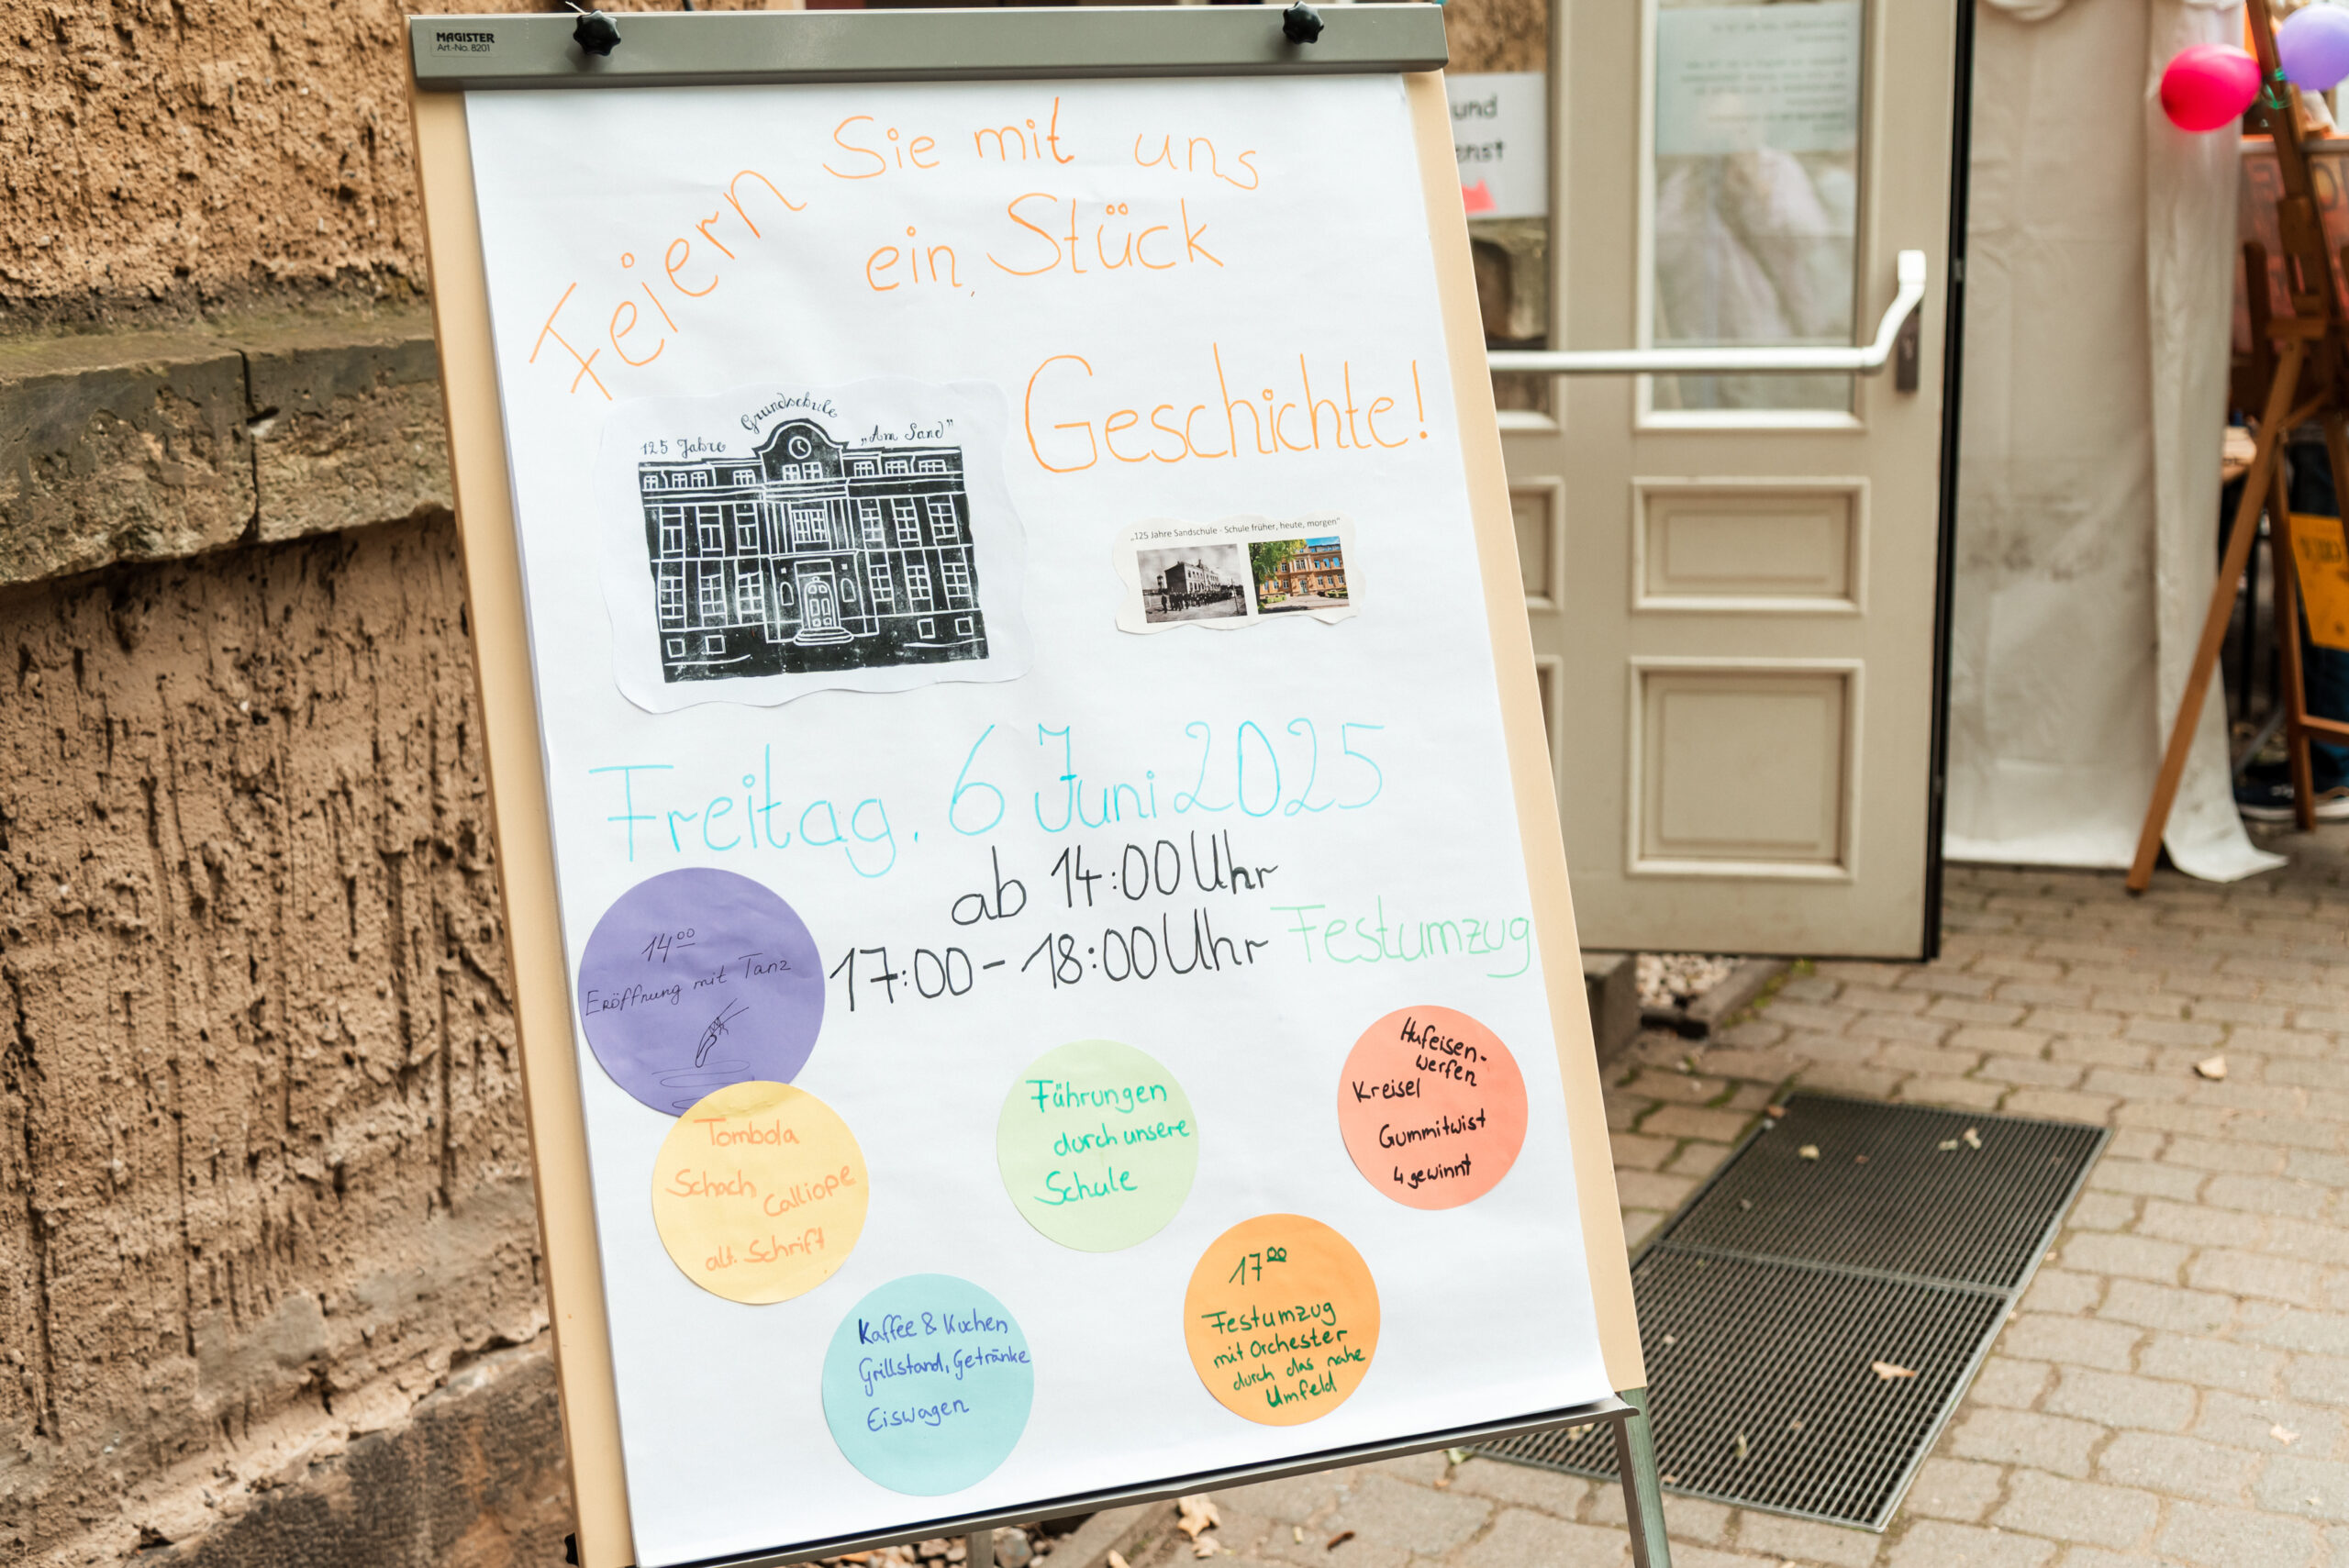 MAGISTER
Art.-No. 8201
Feiern Sie mit uns
ein Stück
Geschichte!
125 Jahre Grundschule „Am Sand"
„125 Jahre Sandschule - Schule früher, heute, morgen"
Freitag, 6 Juni 2025
ab 14:00 Uhr
17:00 - 18:00 Uhr Festumzug
14⁰⁰
Eröffnung mit Tanz
Tombola
Schach
Calliope
alt. Schrift
Kaffee & Kuchen
Grillstand, Getränke
Eiswagen
Führungen
durch unsere
Schule
17⁰⁰
Festumzug
mit Orchester
durch das nahe
Umfeld
Hufeisen-
werfen
Kreisel
Gummitwist
4 gewinnt
und